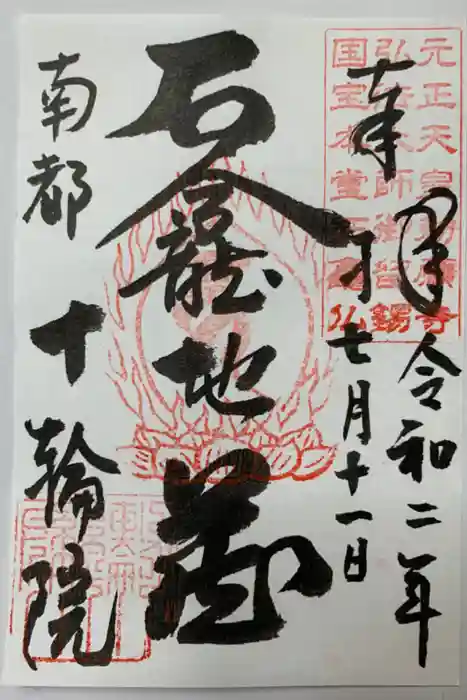 元正天皇勅願寺
弘法大師御留錫
国宝本堂石龕仏
奉拝
令和二年
七月十一日
石龕地蔵
南都 十輪院